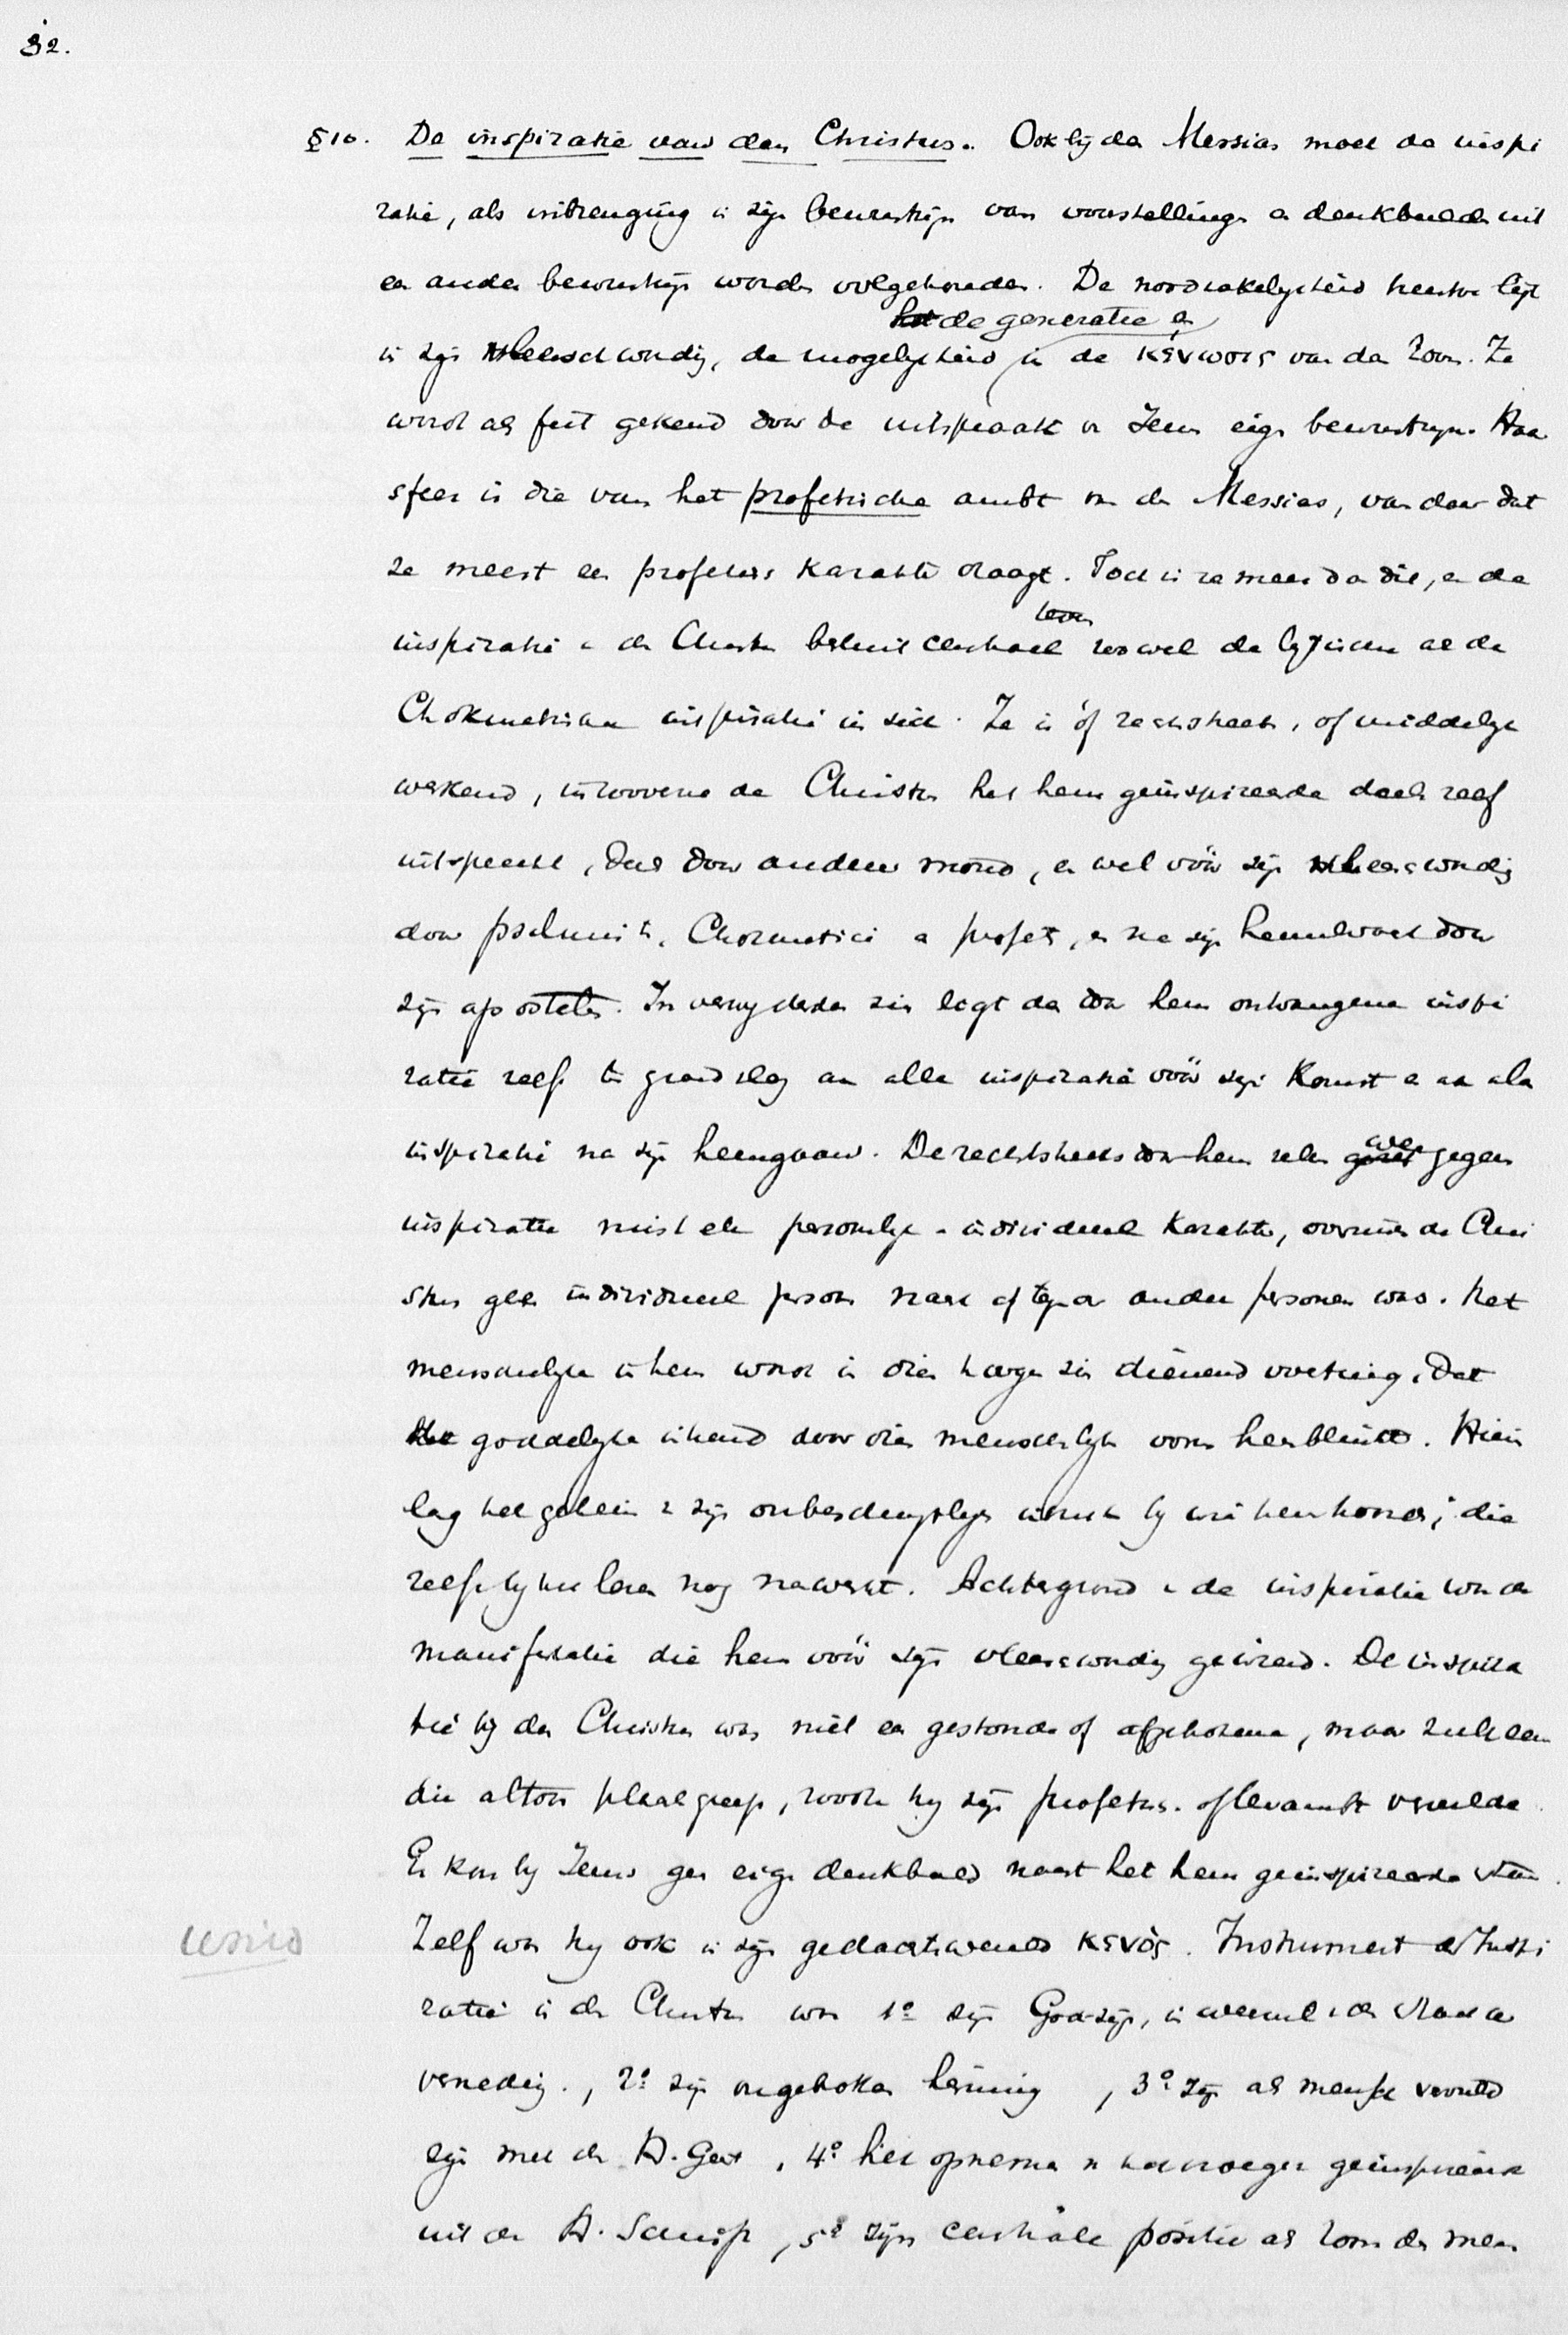 32.
§10. De inspiratie van den Christus. Ook bij den Messias moet de inspi
ratie, als inbrenging in zijn bewustzijn van voorstellingen en denkbeelden uit
een ander bewustzijn worden volgehouden. De noodzakelykheid hiertoe ligt
de generatie en
in zijn vleeschwording, de mogelykheid in de κένωσις van den Zoon. Ze
wordt als feit gekend door de uitspraak van Jezus eigen bewustzyn. Haar
sfeer is die van het profetische ambt van den Messias, van daar dat
ze meest een profetisch karakter draagt. Toch is ze meer dan die, en de
inspiratie in den Christus besluit centraal zoowel de lyrische als de
Chokmatische inspiratie in zich. Ze is óf rechtstreeks, of middelyk
werkend, in zooverre de Christus het hem geïnspireerde deels zelf
uitspreekt, deels door anderer mond, en wel vóór zijn vleeschwording
door psalmisten, Chokmatici en profeten, en na zijn hemelvaart door
zijn apostelen. In verwyderden zin legt de door hem ontvangene inspi
ratie zelfs ten grondslag aan alle inspiratie vóór zijn Komst en aan alle
inspiratie na zijn heengaan. De rechtstreeks door hem zelven weergegeven
inspiratie mist elk persoonlyk-individueel karakter, overmits de Chri
stus geen individueel persoon naast of tegenover andere personen was. Het
menschelyke in hem wordt in dien hoogen zin dienend voertuig, dat
het goddelyke inhoud door dien menschelyken vorm heenblinkt. Hierin
lag het geheim van zijn onbeschryflyken indruk by wie hem hoorden, die
zelfs by het lezen nog nawerkt. Achtergrond van de inspiratie was de
manifestatie die hem vóór zijn vleeschwording gewierd. De inspira
tie bij den Christus was niet een gestoorde of afgebrokene, maar zulk een
die altoos plaats greep, zoodra hij zijn profetisch. of leerambt vervulde.
Er kon by Jezus geen eigen denkbeeld naast het hem geïnspireerde staan.
Zelf was hy ook in zijn gedachtenwereld κενός. Instrument der Inspi
ratie in den Christus was 1º zijn God-zijn,
2º zijn ongebroken kenning, 3º zijn als mensch vervuld
zijn met den H. Geest, 4º het opnemen van het vroeger geïnspireerde
uit de H. Schrift, 5º zijn centrale positie als Zoon des men
unio